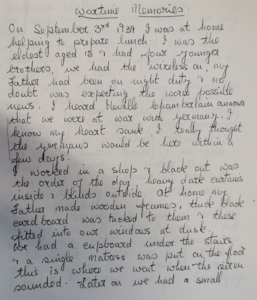 Wartime Memories
On September 3rd 1939 I was at home
helping to prepare lunch. I was the
eldest aged 18 & had four younger
brothers, we had the wireless on, my
father had been on night duty & no
doubt was expecting the worst possible
news. I heard Neville Chamberlain announce
that we were at war with Germany. I
know my heart sank. I really thought
the Germans would be here within a
few days.
I worked in a shop & black out was
the order of the day, heavy dark curtains
inside & blinds outside. At home my
Father made wooden frames, thick black
cardboard was tacked to them & these
fitted into our windows at dusk.
We had a cupboard under the stairs
& a single mattress was put on the floor
this is where we went when the siren
sounded. Later on we had a small